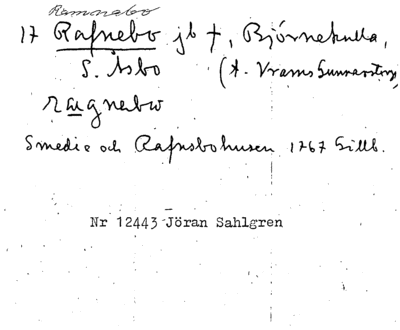 Ramnabo
17 Rafnebo jb †, Björnekulla,
S. Åsbo (t. Vrams Gunnarstorp)
ragnabo
Smedie och Rafnsbohusen 1767 Gillb.
Nr 12443 Jöran Sahlgren